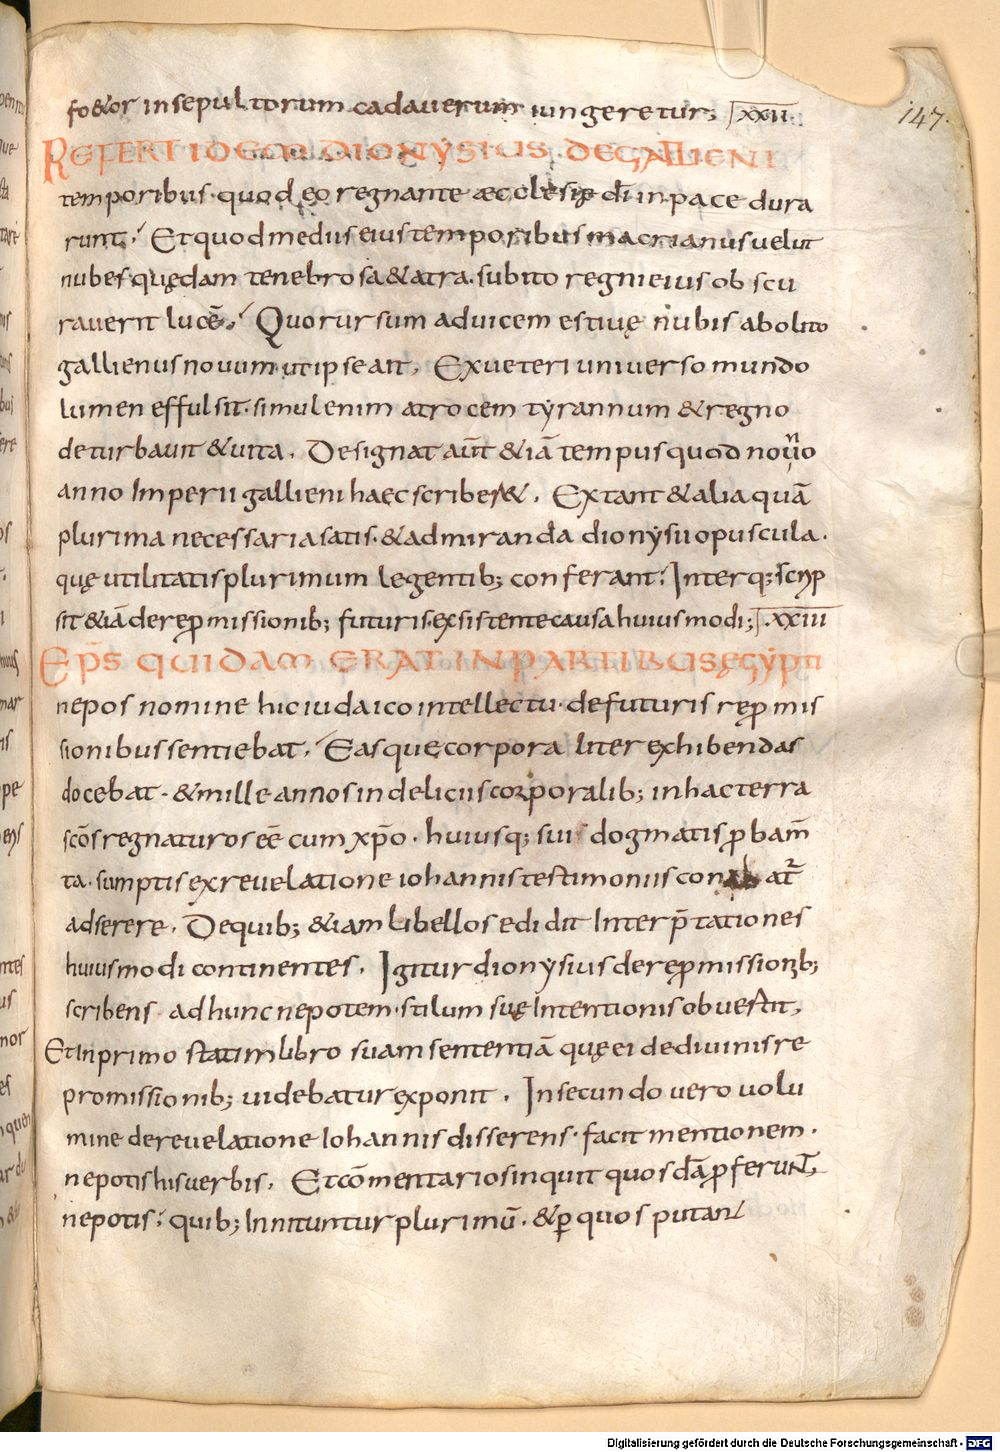 147.
foetor insepultorum cadauerum iungeretur; XXII.
REFERT IDEM DIONYSIUS. DE GALLIENI
temporibus. quod eo regnante æcclesię dī in pace dura
runt. Et quod medus eius temporibus macrianus uelut
nubes quędam tenebrosa & atra. subito regni eius obscu
rauerit lucē. Quo rursum ad uicem estiuę nubis abolito
gallienus nouum ut ipse ait. Ex ueteri uniuerso mundo
lumen effulsit. simul enim atrocem tyrannum & regno
deturbauit & uita. Designat aūt & iā tempus quod nouno
anno Imperii gallieni haec scriberet. Extant & alia quā
plurima necessaria satis. & admiranda dionysii opuscula.
quę utilitatis plurimum legentib; conferant. Inter q; scrip
sit & iā de repmissionib; futuris. exsistente causa huiusmodi; XXIII
EPS QUIDAM ERAT IN PARTIBUS ĘGYPTI
nepos nomine hic iudaico intellectu. de futuris repmis
sionibus sentiebat. Easque corporaliter exhibendas
docebat. & mille annos in deliciis corporalib; in hac terra
scōs regnaturos eē cum xpo. huiusq; sui dogmatis pbam̄
ta. sumptis ex reuelatione iohannis testimoniis conabat̄
adserere. De quib; & iam libellos edidit Interp̄tationes
huiusmodi continentes. Igitur dionysius de repmissionib;
scribens ad hunc nepotem. stilum suę Intentionis obuertit,
Et In primo statim libro suam sententiā quę ei de diuinis re
promissionib; uidebatur exponit. In secundo uero uolu
mine de reuelatione Iohannis disserens. facit mentionem.
nepotis his uerbis. Et cōmentarios inquit quosdā pferunt,
nepotis. quib; Innituntur plurimū. & p quos putant
Digitalisierung gefördert durch die Deutsche Forschungsgemeinschaft - DFG